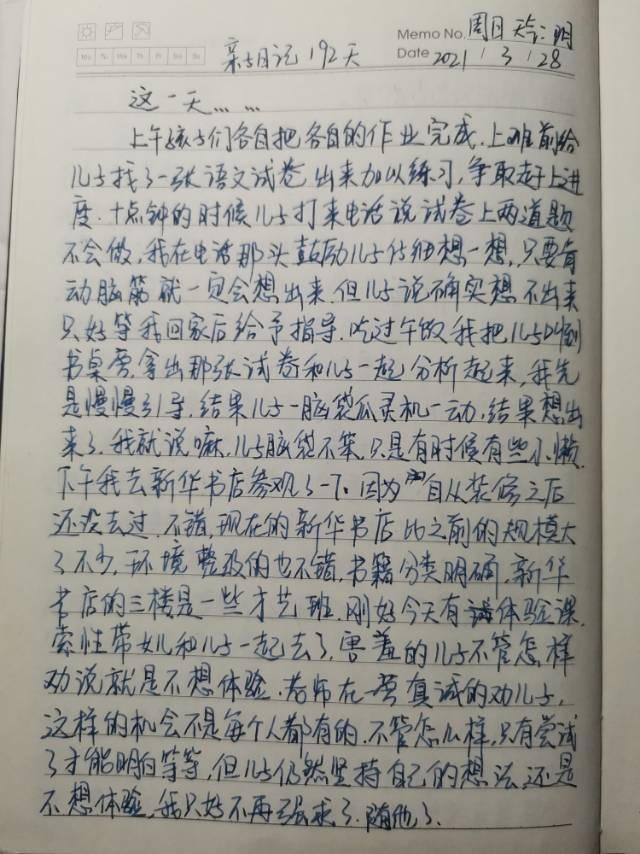 Memo No. 周日 天气:阴
Date 2021 / 3 / 28
亲子日记 192天
这一天… …
上午孩子们各自把各自的作业完成.上班前给
儿子找了一张语文试卷出来加以练习,争取赶上进
度.十点钟的时候儿子打来电话说试卷上两道题
不会做.我在电话那头鼓励儿子仔细想一想,只要肯
动脑筋就一定会想出来.但儿子说确实想不出来
只好等我回家后给予指导.吃过午饭我把儿子叫到
书桌旁.拿出那张试卷和儿子一起分析起来,我先
是慢慢引导.结果儿子一脑袋瓜灵机一动.结果想出
来了.我就说嘛.儿子脑袋不笨.只是有时候有些小懒.
下午我去新华书店参观了一下.因为自从装修之后
还没去过.不错,现在的新华书店比之前的规模大
了不少,环境整改的也不错.书籍分类明确,新华
书店的三楼是一些才艺班.刚好今天有体验课.
索性带女儿和儿子一起去了.害羞的儿子不管怎样
劝说就是不想体验.老师在旁真诚的劝儿子,
这样的机会不是每个人都有的.不管怎么样,只有尝试
了才能明白等等,但儿子仍然坚持自己的想法还是
不想体验,我只好不再强求了.随他了.